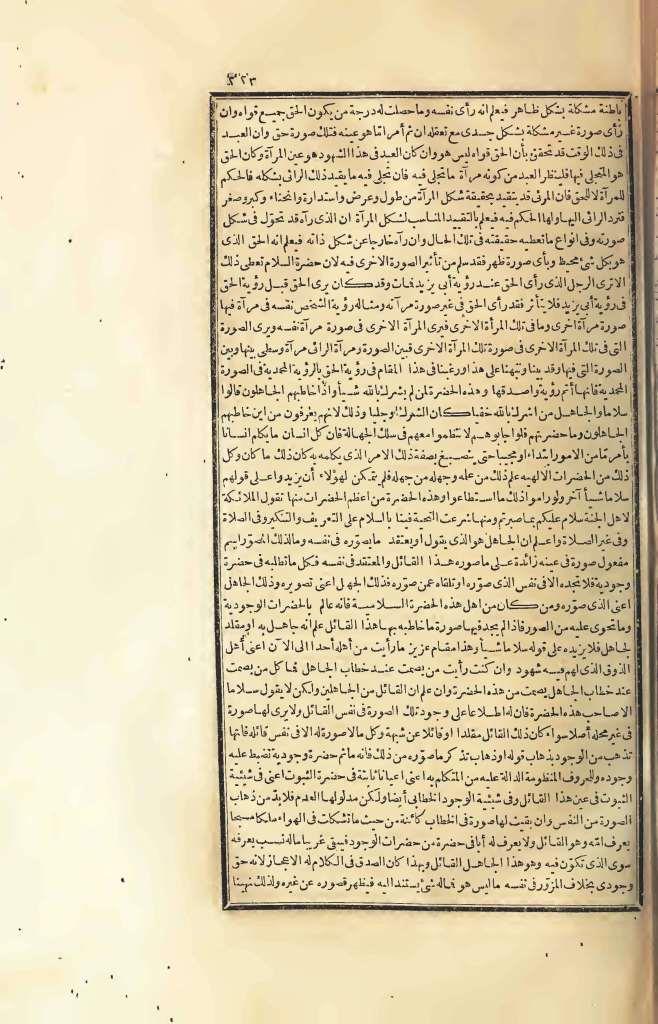 ٣٢٣
باطنة مشكلة بشكل ظاهر فيعلم انه رأى نفسه وما حصلت له درجة من يكون الحق جميع قواه وان
رأى صورة غير مشكلة بشكل جسدى مع تعقله ان ثم أمر اما هو عينه فتلك صورة حق وان العبد
فى ذلك الوقت قد تحقق بأن الحق قواه ليس هو وان كان العبد فى هذا الشهود هو عين المرآة وكان الحق
هو المتجلى فيها فلينظر العبد من كونه مرآة ما تجلى فيه فان تجلى فيه ما يقيد ذلك الرائى بشكله فالحكم
للمرآة لا للحق فان المرئى قد يتقيد بحقيقة شكل المرآة من طول وعرض واستدارة وانحناء وكبر وصغر
فترد الرائى اليها ولها الحكم فيه فيعلم بالتقييد المناسب لشكل المرآة ان الذى رآه قد تحول فى شكل
صورته وفى انواع ما تعطيه حقيقته فى تلك الحال وان رآه خارجا عن شكل ذاته فيعلم انه الحق الذى
هو بكل شئ محيط وبأى صورة ظهر فقد سلم من تأثير الصورة الاخرى فيه لان حضرة السلام تعطى ذلك
الاترى الرجل الذى رأى الحق عند رؤية أبى يزيد فمات وقد كان يرى الحق قبل رؤية الحق
فى رؤية أبى يزيد فلا يتأثر فقد رأى الحق فى غير صورة مرآته ومثاله رؤية الشخص نفسه فى مرآة فيها
صورة مرآة اخرى وما فى تلك المرأة الاخرى فيرى المرآة الاخرى فى صورة مرآة نفسه ويرى الصورة
التى فى تلك المرآة الاخرى فى صورة تلك المرآة الاخرى فبين الصورة ومرآة الرائى مرآة وسطى بينها وبين
الصورة التى فيها وقد بينا ونبهنا على هذا ورغبنا فى هذا المقام فى رؤية الحق بالرؤية المحمدية فى الصورة
المحمدية فانها أتم رؤية واصدقها وهذه الحضرة لمن لم يشرك بالله شيأ واذا خاطبهم الجاهلون قالوا
سلاما والجاهل من اشرك بالله خفيا كان الشرك او جليا وذلك لانهم يعرفون من اين خاطبهم
الجاهلون وما حضرتهم فلو اجابوهم لانتظموا معهم فى سلك الجهالة فان كل انسان ما يكلم انسانا
بأمر تما من الامور ابتداء او مجيبا حتى ينصبغ بصفة ذلك الامر الذى يكلمه به كان ذلك ما كان وكل
ذلك من الحضرات الالهيه علم ذلك من علمه وجهله من جهله فلم يتمكن لهؤلاء أن يزيدوا على قولهم
سلاما شيأ آخر ولو راموا ذلك ما استطاعوا وهذه الحضرة من اعظم الحضرات منها تقول الملائكة
لاهل الجنة سلام عليكم بما صبرتم ومنها شرعت التحية فينا بالسلام على التعريف والتنكير وفى الصلاة
وفى غير الصلاة واعلم ان الجاهل هو الذى يقول او يعتقد ما يصوّره فى نفسه وما لذلك المصوّر اسم
مفعول صورة فى عينه زائدة على ما صوره هذا القائل والمعتقد فى نفسه فكل ما تطلبه فى حضرة
وجودية فلا تجده الا فى نفس الذى صوّره او تلقاه عمن صوّره فذلك الجهل اعنى تصويره وذلك الجاهل
اعنى الذى صوّره ومن كان من اهل هذه الحضرة السلامية فانه عالم بالحضرات الوجودية
وما تحوى عليه من الصور فاذا لم يجد فيها صورة ما خاطبه بها هذا القائل علم انه جاهل به او مقلد
لجاهل فلا يزيده على قوله سلاما شيأ وهذا مقام عزيز ما رأيت من أهله أحدا الى الآن اعنى أهل
الذوق الذى لهم فيه شهود وان كنت رأيت من يصمت عند خطاب الجاهل فما كل من يصمت
عند خطاب الجاهل يصمت من هذه الحضرة وان علم ان القائل من الجاهلين ولكن لا يقول سلاما
الا صاحب هذه الحضرة فان له اطلاعا على وجود تلك الصورة فى نفس القائل ولا يرى لها صورة
فى غير محله أصلا سواء كان ذلك القائل مقلدا او قائلا عن شبهة وكل ما لا صورة له الا فى نفس قائله فانها
تذهب من الوجود بذهاب قوله او ذهاب تذكر ما صوّره من ذلك فانه ما ثم حضرة وجودية تضبط عليه
وجوده وللحروف المنظومة الدالة عليه من المتكلم به اعنى اعيانا ثابتة فى حضرة الثبوت اعنى فى شيئية
الثبوت فى عين هذا القائل وفى شيئية الوجود الخطابى أيضا ولكن مدلولها العدم فلا بد من ذهاب
الصورة من النفس وان بقيت لها صورة فى الخطاب كائنة من حيث ما تشكلت فى الهواء ملكا مسبحا
يعرف امّه وهو القائل ولا يعرف له أبا فى حضرة من حضرات الوجود فيبقى غريبا ما له نسب يعرفه
سوى الذى تكوّن فيه وهو هذا الجاهل القائل وبهذا كان الصدق فى الكلام له الاعجاز لانه حق
وجودى بخلاف المزوّر فى نفسه ما ليس هو فما له شئ يستند اليه فيظهر قصوره عن غيره ولذلك نهينا